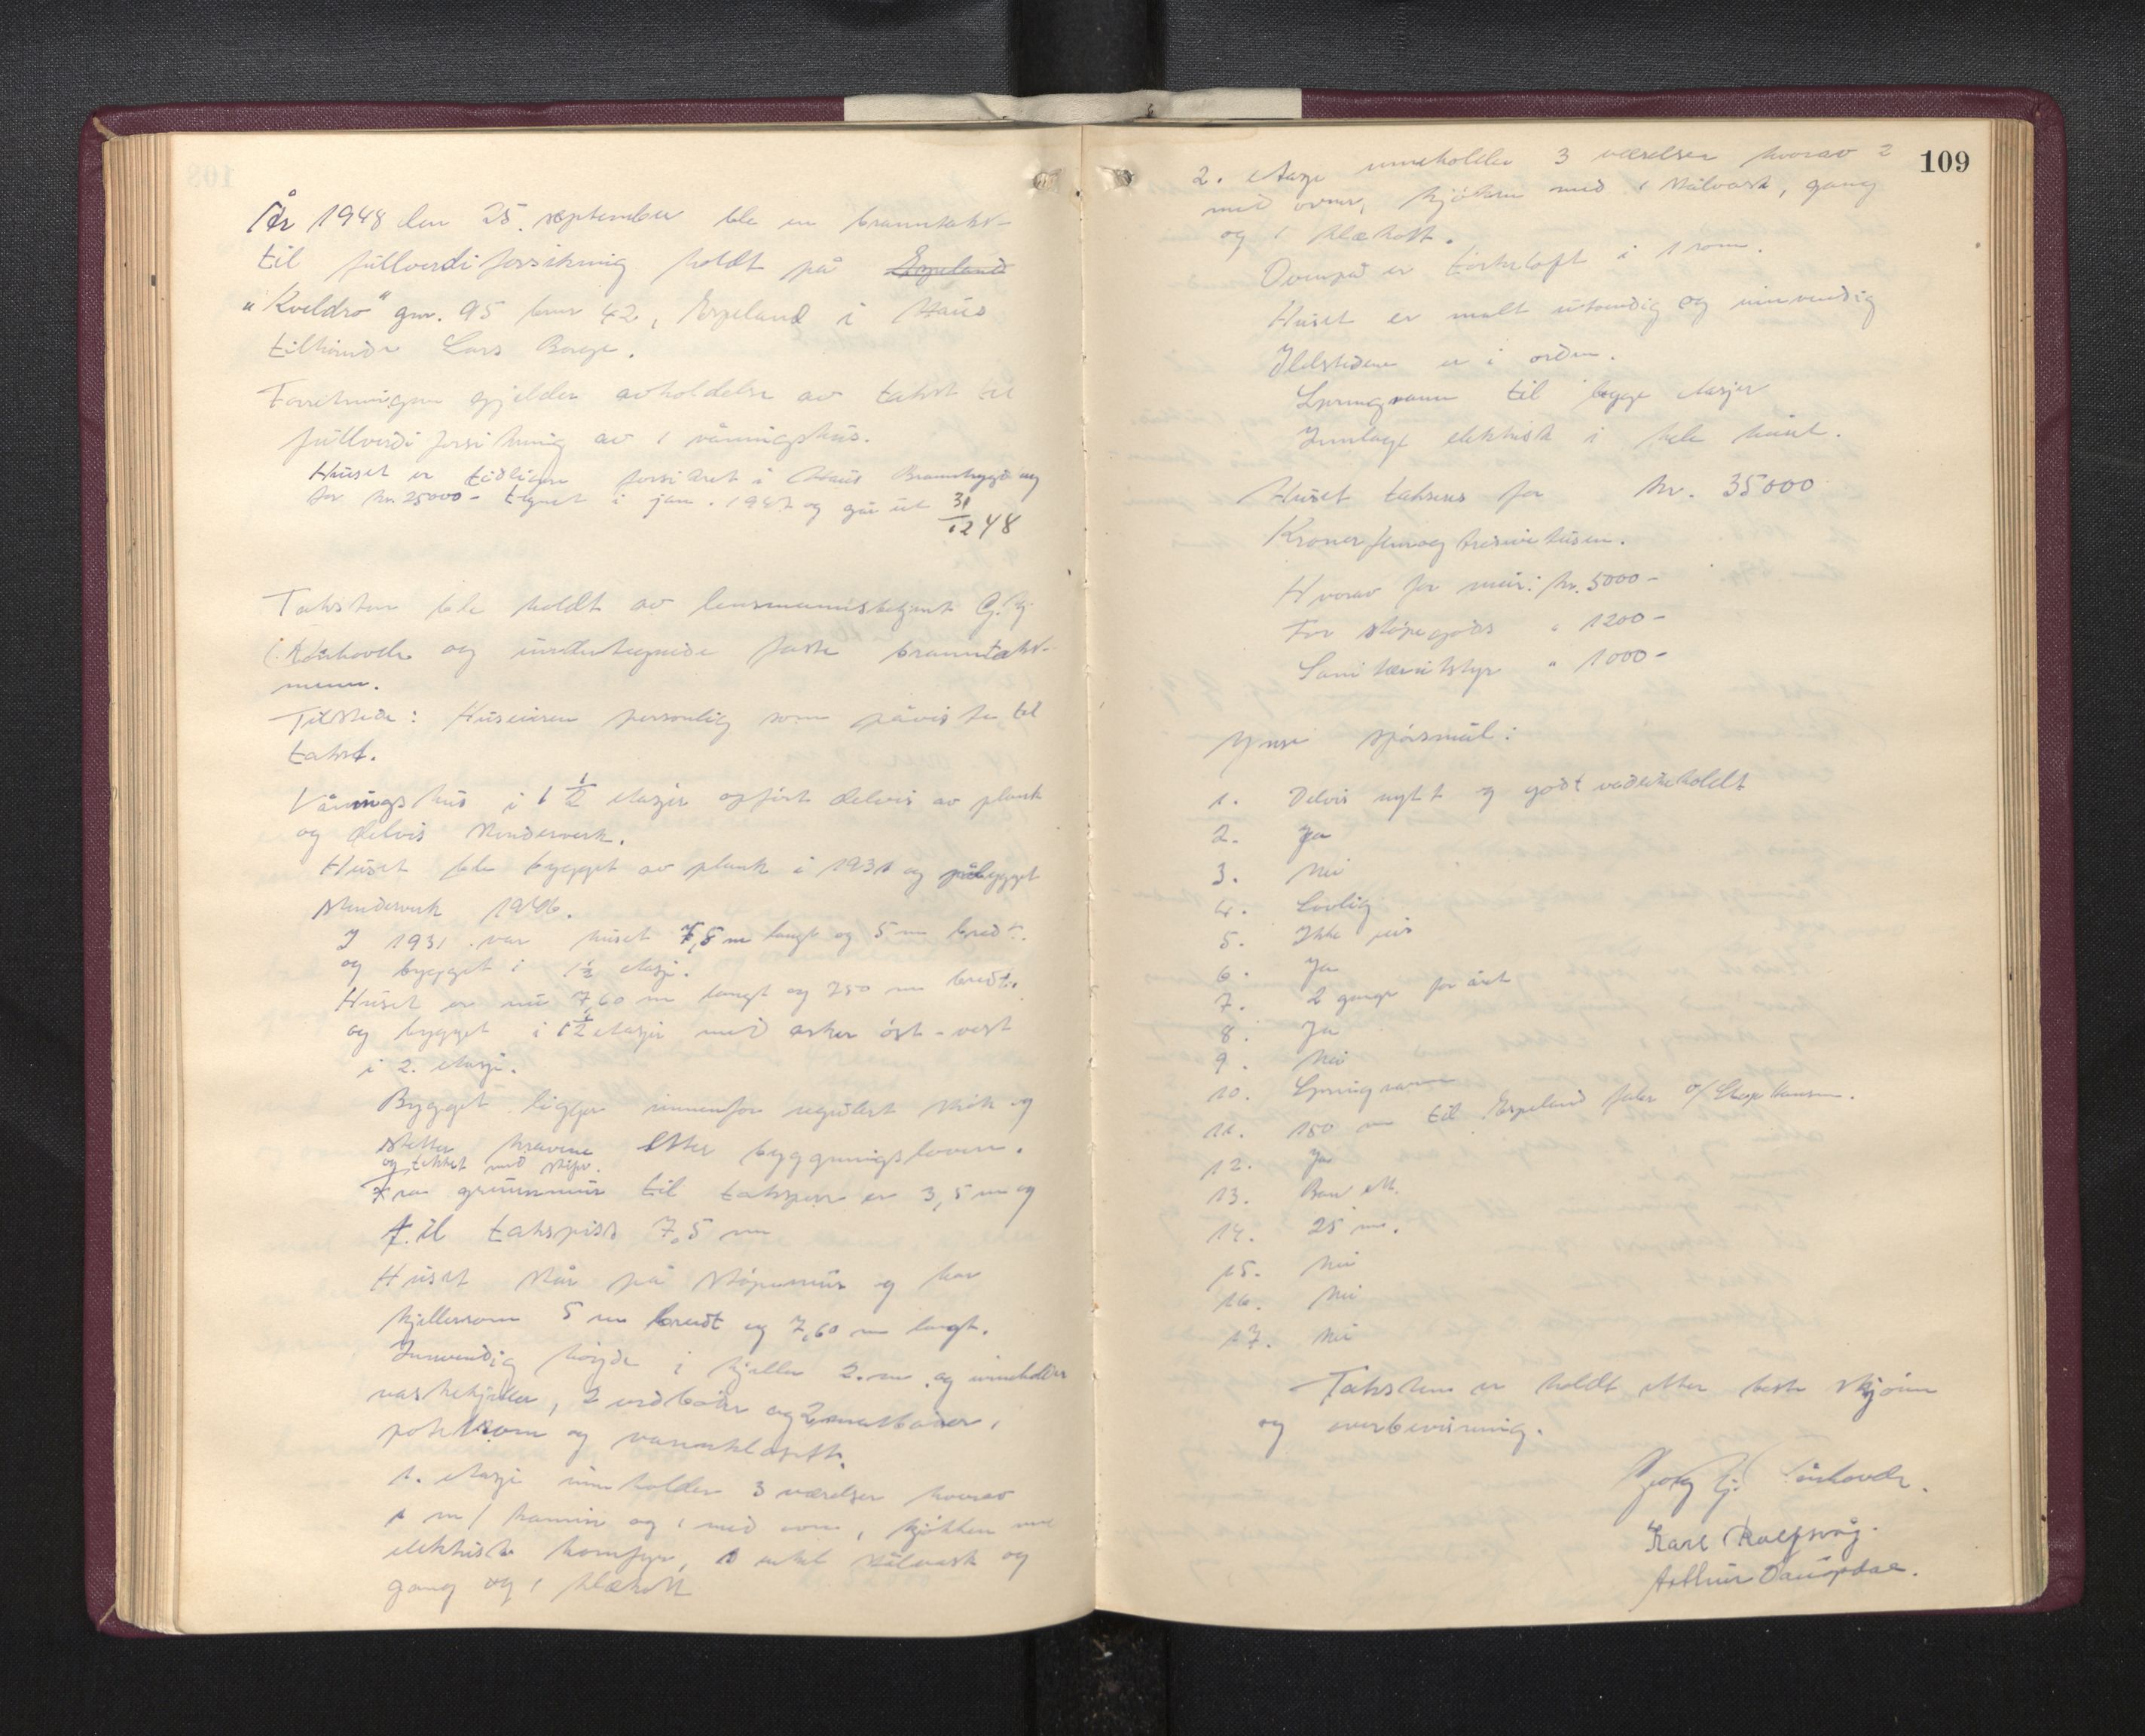 År 1948 den 25. september ble en branntakst
til fullverdiforsikring holdt på Espeland
"Kveldro" gnr. 95 bnr 42, Espeland i Haus
tilhørende Lars Borge.
Forretningen gjelder avholdelse av takst til
fullverdiforsikring av 1 våningshus.
Huset er tidligere forsikret i Haus Branntrygdelag
for kr. 25000- tegnet i jan. 1947 og går ut 31/12 48
Taksten ble holdt av lensmannsbetjent G. Gj.
og undertegnede faste branntakst-
menn.
Tilstede: Huseieren personlig som påviste til
takst.
Våningshus i 1 1/2 etasjer oppført delvis av plank
og delvis stenderverk.
Huset ble bygget av plank i 1931 og påbygget
stenderverk 1946.
I 1931 var huset 7,5 m langt og 5 m bredt
og bygget i 1 1/2 etasje.
Huset er nu 7,60 m langt og 750 m bredt
og bygget i 1 1/2 etasjer med arker øst-vest
i 2. etasje.
Bygget ligger innenfor regulert strøk og
støtter kravene etter bygningsloven.
og tekket med skifer.
Fra grunnmur til taksperr er 3,5 m og
til takspiss 7,5 m
Huset står på støpemur og har
kjellerrom 5 m bredt og 7,60 m langt.
Innvendig høyde i kjeller 2. m og inneholder
vaskekjeller, 2 vedboder og 2 matboder,
potetrom og vannklosett.
1. etasje inneholder 3 værelser hvorav
1 m/ kamin og 1 med ovn, kjøkken med
elektrisk komfyr, 1 enkel stålvask og
gang og 1 klekott
109
2. etasje inneholder 3 værelser hvorav 2
med ovner, kjøkken med 1 stålvask, gang
og 1 klekott.
Ovenpå er tørkeloft i 1 rom.
Huset er malt utvendig og innvendig
Ildstedene er i orden.
Springvann til begge etasjer
Innlagt elektrisk i hele huset.
Huset takseres for kr. 35000
Kroner femogtrettitusen.
Hvorav for mur: kr. 5000-
For støpegods " 1200-
Sanitærutstyr " 1000-
Ymse spørsmål:
1. Delvis nytt og godt vedlikeholdt
2. Ja
3. Nei
4. Lovlig
5. Ikke peis
6. Ja
7. 2 gange for året
8. Ja
9. Nei
10. Springvann
11. 150 m til Espeland
12. Ja
13.
14. 25 m.
15. Nei
16. Nei
17. Nei
Taksten er holdt etter beste skjønn
og overbevisning.
Georg Gj.
Karl Rolfsvåg.
Arthur Daugsdal.